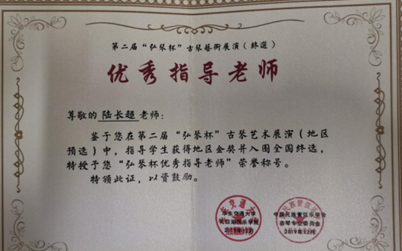 第二届“弘琴杯”古琴藝術展演（终选）
优秀指导老师
尊敬的 陆长超 老师：
鉴于您在第二届“弘琴杯”古琴艺术展演（地区
预选）中，指导学生获得地区金奖并入围全国终选，
特授于您“弘琴杯优秀指导老师”荣誉称号。
特颁此证，以资鼓励。